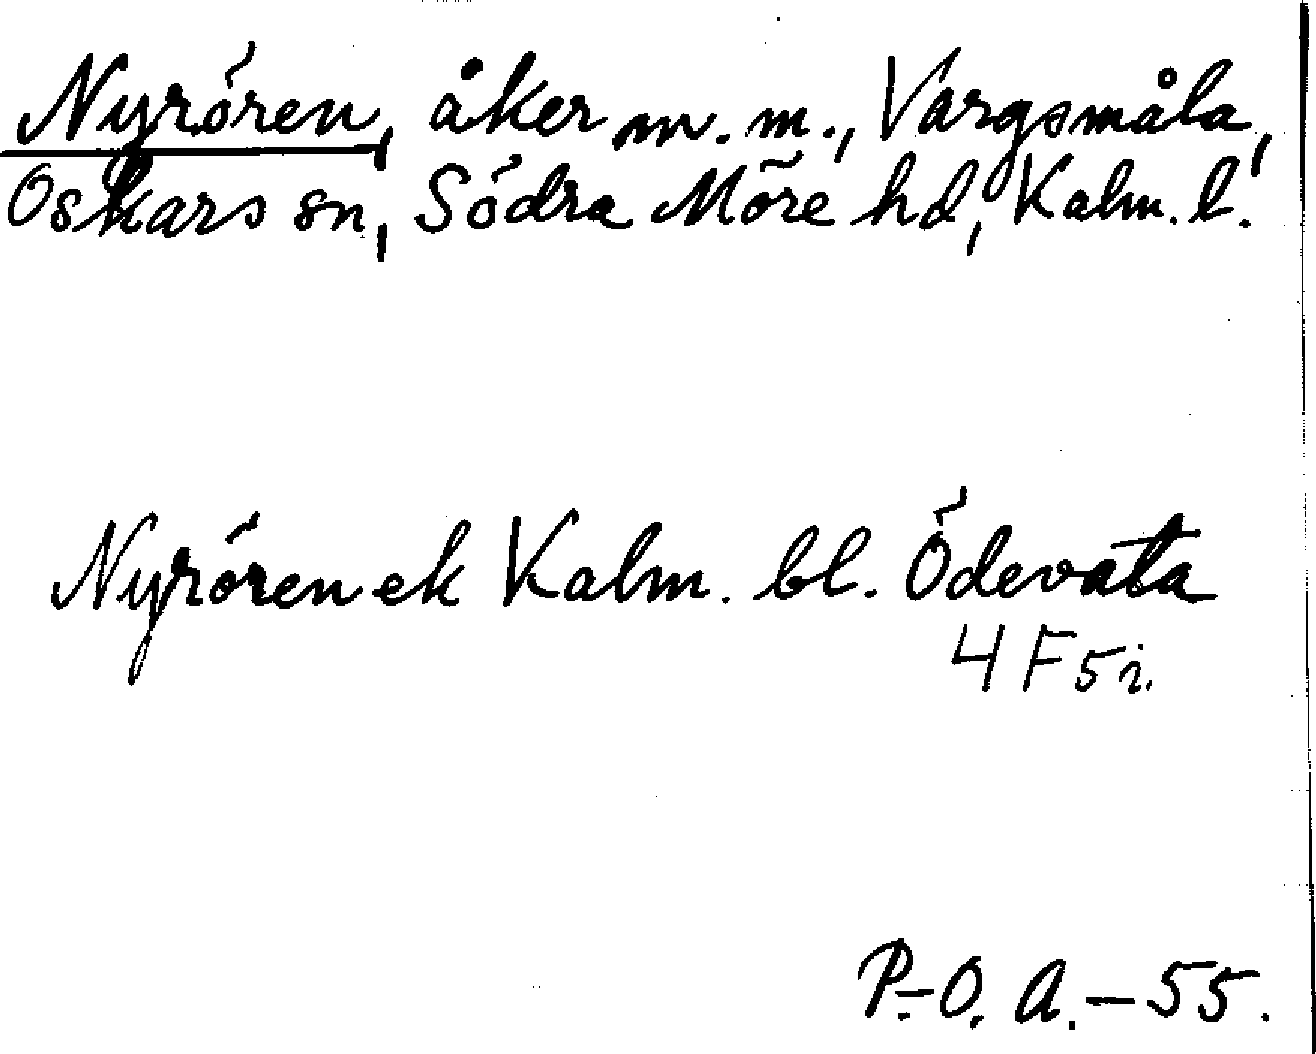 Nyrören, åker m. m., Vargsmåla,
Oskars sn, Södra Möre hd, Kalm. l.
Nyrören ek Kalm. bl. Ödevata
4 F 5 i.
P.-O. A. - 55.